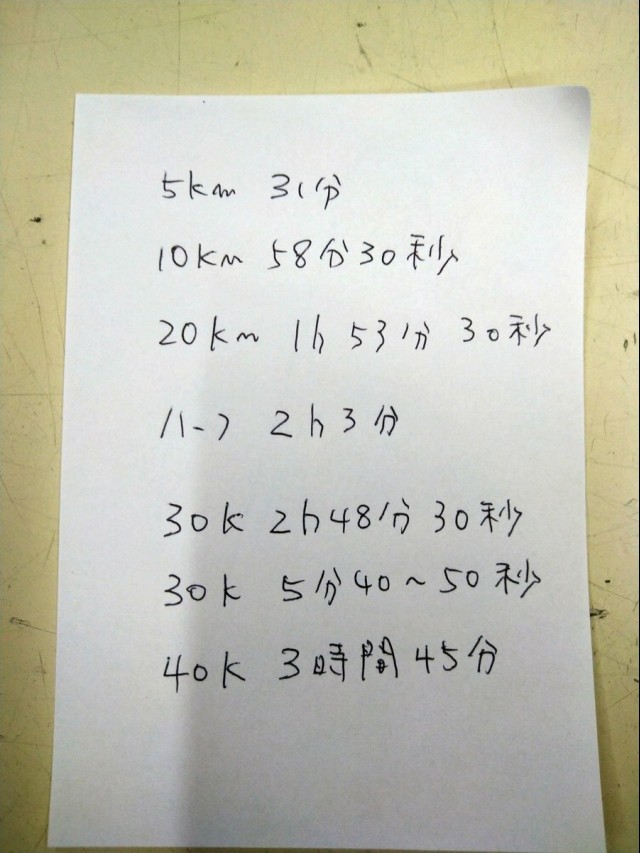 5km 31分
10km 58分30秒
20km 1h 53分 30秒
ハーフ 2h3分
30k 2h48分 30秒
30k 5分40~50秒
40k 3時間45分